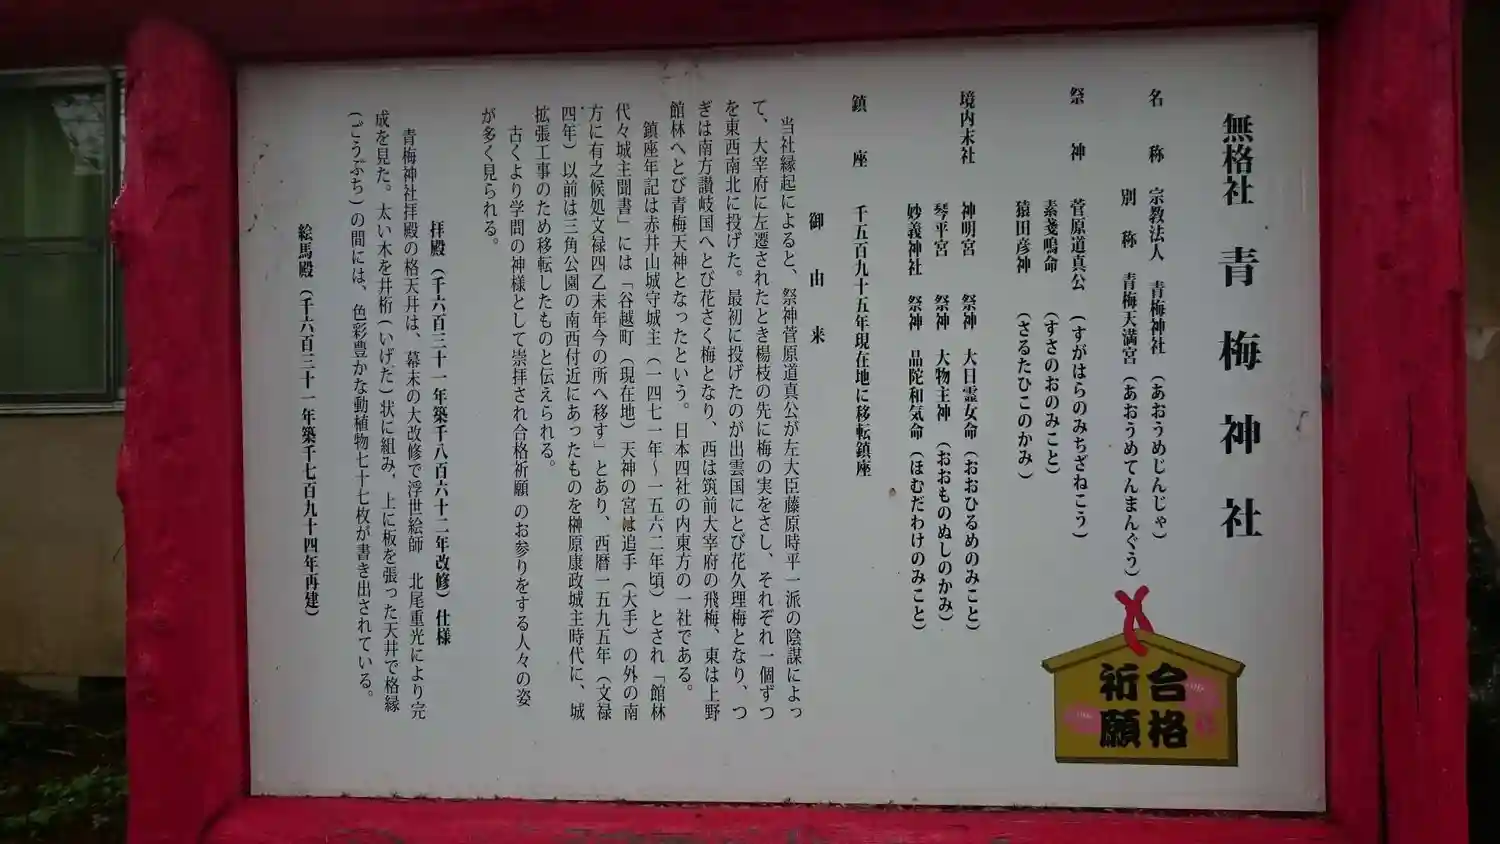 無格社　青梅神社
名　称　宗教法人　青梅神社（あおうめじんじゃ）
別　称　青梅天満宮（あおうめてんまんぐう）
祭　神　菅原道真公（すがはらのみちざねこう）
素戔鳴命（すさのおのみこと）
猿田彦神（さるたひこのかみ）
境内末社　神明宮　祭神　大日霊女命（おおひるめのみこと）
琴平宮　祭神　大物主神（おおものぬしのかみ）
妙義神社　祭神　品陀和気命（ほむだわけのみこと）
鎮　座　千五百九十五年現在地に移転鎮座
御由来
当社縁起によると、祭神菅原道真公が左大臣藤原時平一派の陰謀によっ
て、大宰府に左遷されたとき楊枝の先に梅の実をさし、それぞれ一個ずつ
を東西南北に投げた。最初に投げたのが出雲国にとび花久理梅となり、つ
ぎは南方讃岐国へとび花さく梅となり、西は筑前大宰府の飛梅、東は上野
館林へとび青梅天神となったという。日本四社の内東方の一社である。
鎮座年記は赤井山城守城主（一四七一年～一五六二年頃）とされ「館林
代々城主聞書」には「谷越町（現在地）天神の宮は追手（大手）の外の南
方に有之候処文禄四乙未年今の所へ移す」とあり、西暦一五九五年（文禄
四年）以前は三角公園の南西付近にあったものを榊原康政城主時代に、城
拡張工事のため移転したものと伝えられる。
古くより学問の神様として崇拝され合格祈願のお参りをする人々の姿
が多く見られる。
拝殿（千六百三十一年築千八百六十二年改修）仕様
青梅神社拝殿の格天井は、幕末の大改修で浮世絵師　北尾重光により完
成を見た。太い木を井桁（いげた）状に組み、上に板を張った天井で格縁
（ごうぶち）の間には、色彩豊かな動植物七十七枚が書き出されている。
絵馬殿（千六百三十一年築千七百九十四年再建）
合格
祈願